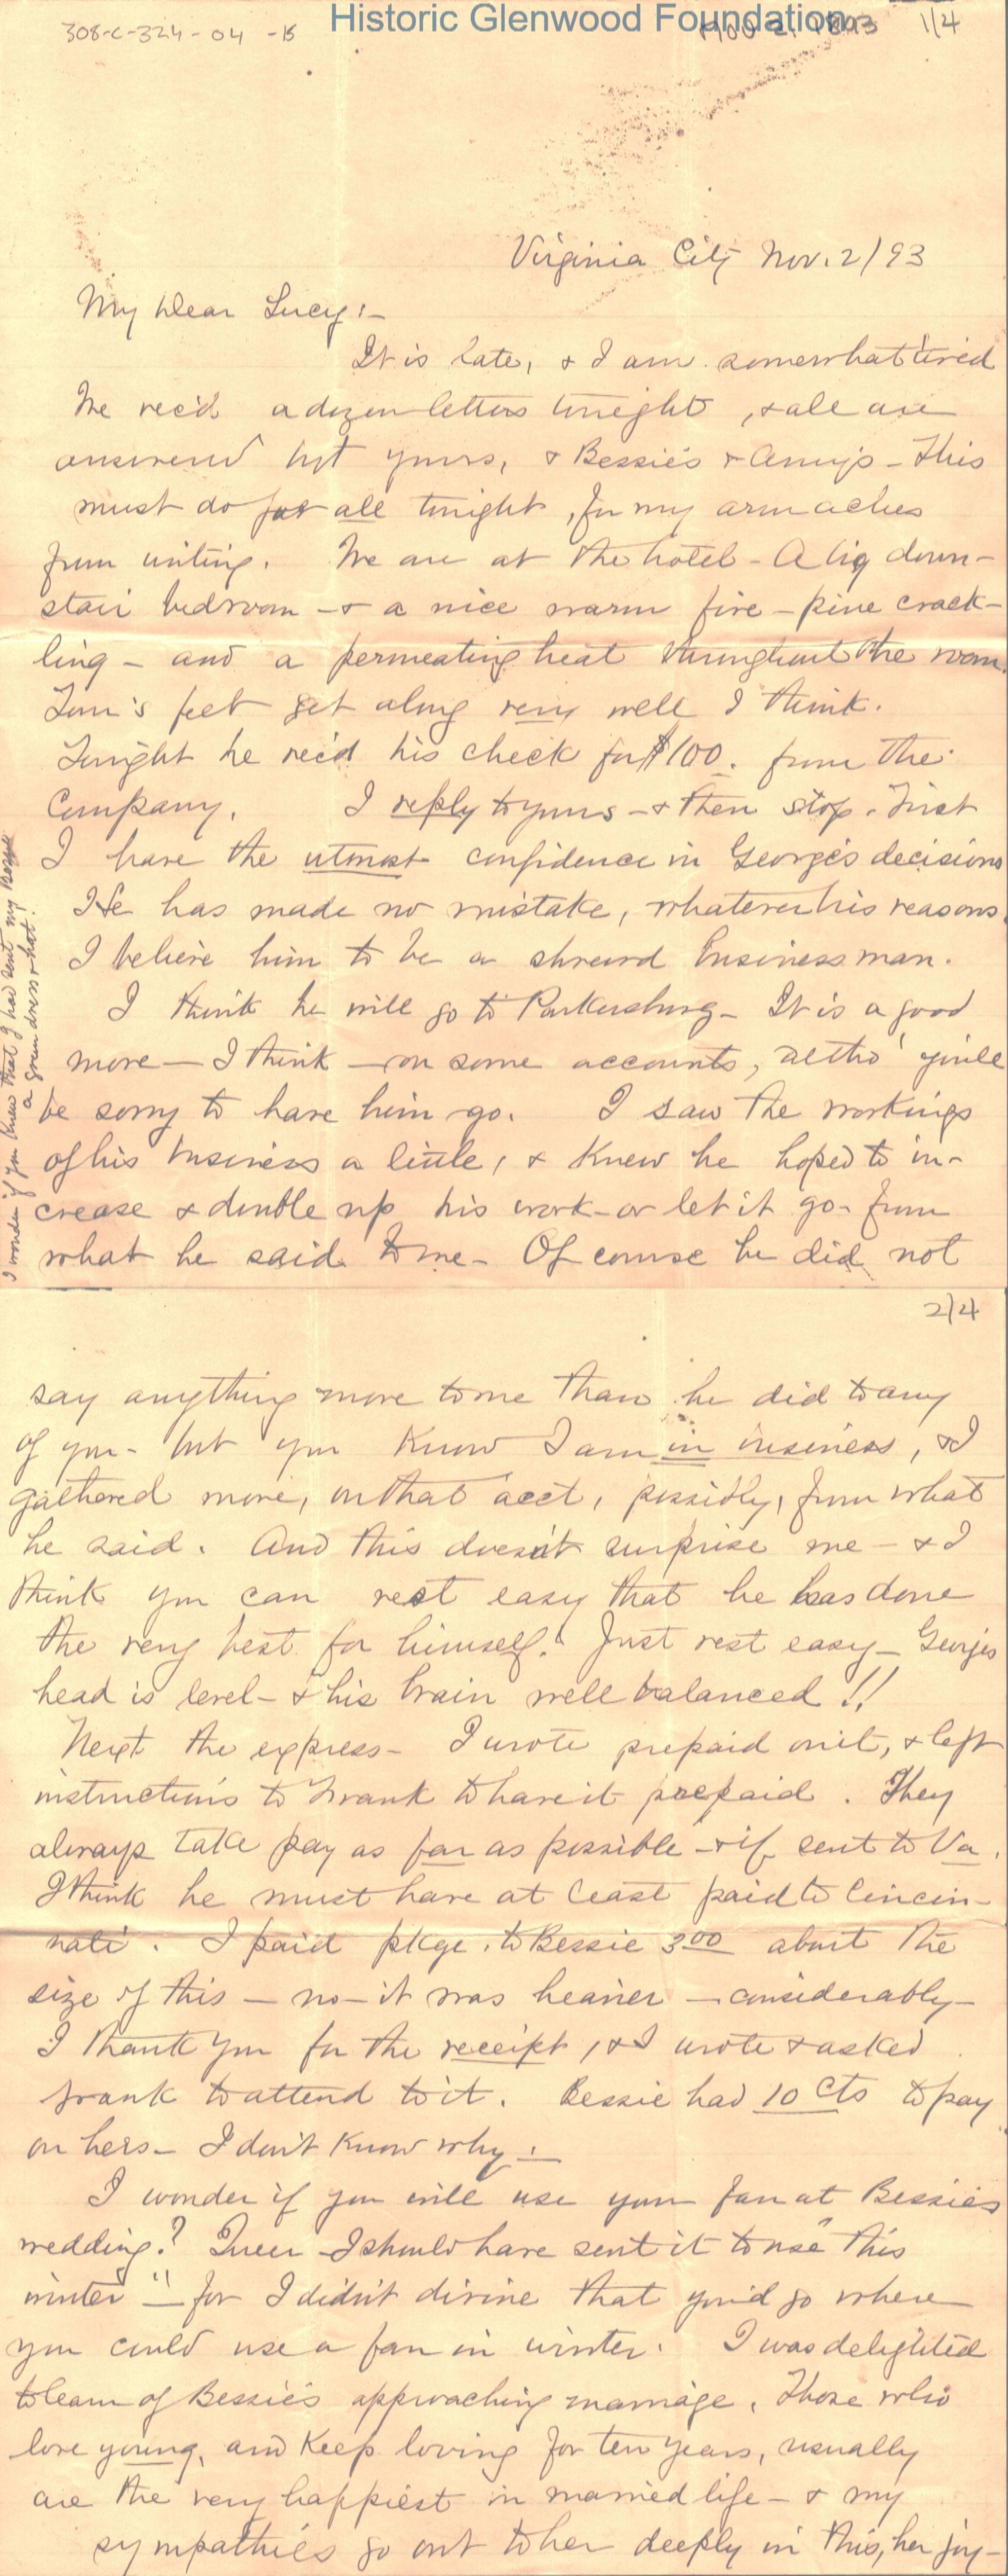 308-C-324-04-15
Historic Glenwood Foundation
Nov 2, 1893
1/4
Virginia City Nov. 2/93
My Dear Lucy:-
It is late, & I am somewhat tired
We rec'd a dozen letters tonight, & all are
answered but yours, & Bessie's & Amy's - This
must do for all tonight, for my arm aches
from writing. We are at the hotel - A big down-
stair bedroom - & a nice warm fire - pine crack-
ling - and a permeating heat throughout the room.
Tom's feet get along very well I think.
Tonight he rec'd his check for $100. from the
Company. I reply to yours - & then stop. First
I have the utmost confidence in George's decisions
He has made no mistake, whatever his reasons.
I believe him to be a shrewd business man.
I think he will go to Parkersburg - It is a good
move - I think - on some accounts, altho' you'll
be sorry to have him go. I saw the workings
of his business a little, & knew he hoped to in-
crease & double up his work - or let it go - from
what he said to me - Of course he did not
I wonder if you knew that I had sent my
a green dress & hat!
2/4
say anything more to me than he did to any
of you - but you know I am in business, & I
gathered more, on that acct, possibly, from what
he said. And this doesn't surprise me - & I
think you can rest easy that he has done
the very best for himself. Just rest easy - George's
head is level - & his brain well balanced!!
Next the express - I wrote prepaid on it, & left
instructions to Frank to have it prepaid. They
always take pay as far as possible - & if sent to Va.
I think he must have at least paid to Cincin-
nati. I paid pkge. to Bessie 3.00 about the
size of this - no - it was heavier - considerably -
I thank you for the receipt, & I wrote & asked
Frank to attend to it. Bessie had 10 cts to pay
on hers - I don't know why!
I wonder if you will use your fan at Bessie's
wedding? Queer I should have sent it to use "this
winter" - for I didn't divine that you'd go where
you could use a fan in winter. I was delighted
to learn of Bessie's approaching marriage. Those who
love young, and keep loving for ten years, usually
are the very happiest in married life - & my
sympathies go out to her deeply in this, her joy -